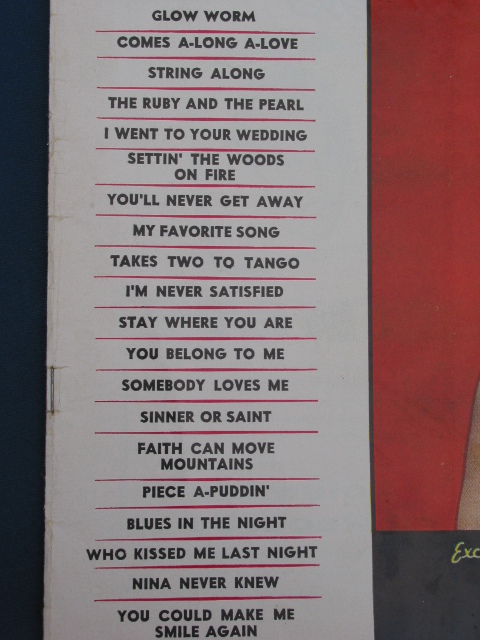 GLOW WORM
COMES A-LONG A-LOVE
STRING ALONG
THE RUBY AND THE PEARL
I WENT TO YOUR WEDDING
SETTIN' THE WOODS
ON FIRE
YOU'LL NEVER GET AWAY
MY FAVORITE SONG
TAKES TWO TO TANGO
I'M NEVER SATISFIED
STAY WHERE YOU ARE
YOU BELONG TO ME
SOMEBODY LOVES ME
SINNER OR SAINT
FAITH CAN MOVE
MOUNTAINS
PIECE A-PUDDIN'
BLUES IN THE NIGHT
WHO KISSED ME LAST NIGHT
NINA NEVER KNEW
YOU COULD MAKE ME
SMILE AGAIN